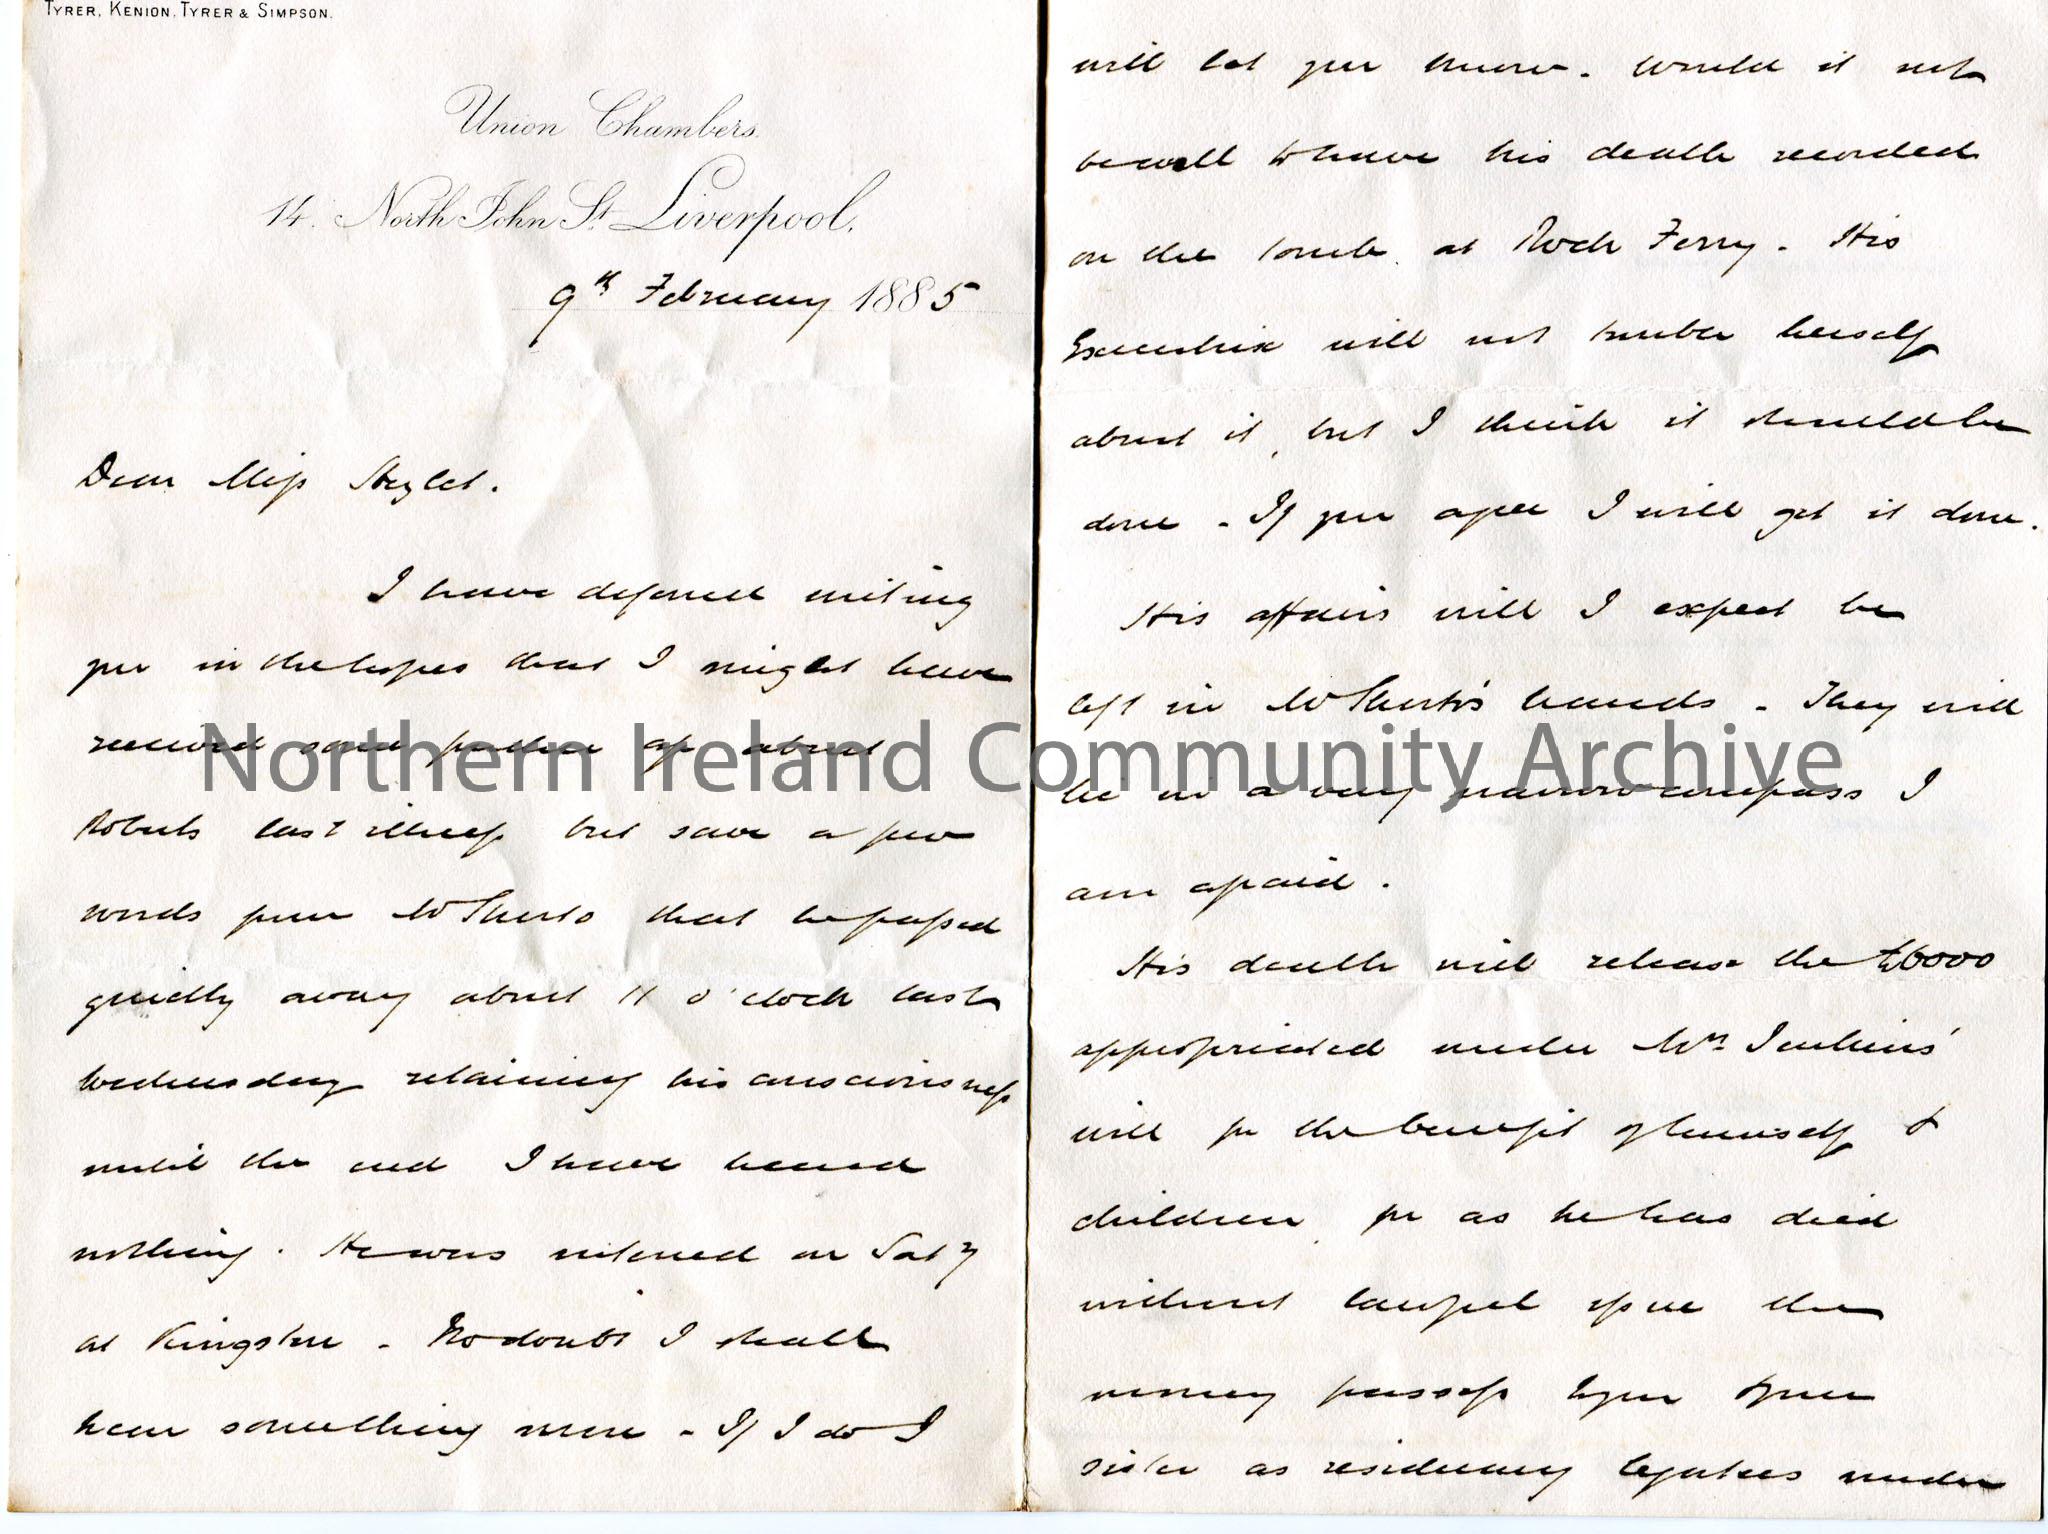 TYRER, KENION, TYRER & SIMPSON.
Union Chambers.
14. North John St. Liverpool,
9th February 1885
Dear Miss
I have deferred writing
you in the hopes that I might have
received some further of about
Roberts last illness but save a few
words from Mr that he passed
quietly away about 11 o'clock last
Wednesday retaining his consciousness
until the end I have heard
nothing. He was interred on Saty
at Kingston - No doubt I shall
hear something more - If I do I
will let you know. Would it not
be well to have his death recorded
on the tomb at Rock Ferry - His
Executrix will not trouble herself
about it, but I think it should be
done - If you agree I will get it done.
His affairs will I expect be
left in Mr hands - They will
be in a very narrow compass I
am afraid.
His death will release the £6000
appropriated under Mrs Jenkins'
will for the benefit of himself &
children, for as he has died
without lawful issue the
money passes to you & your
sister as residuary legatees under
Northern Ireland Community Archive